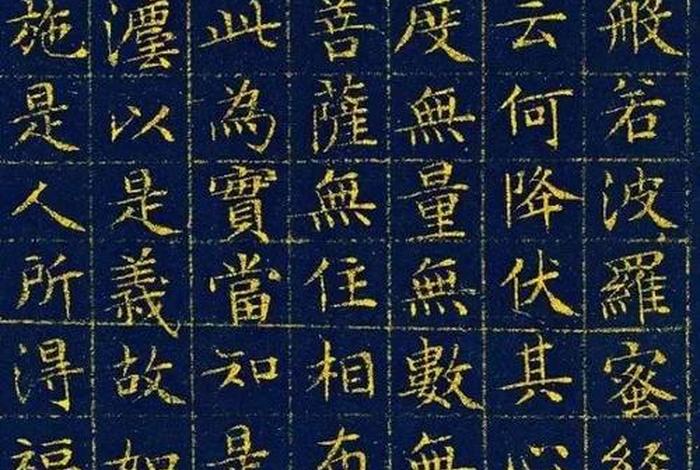 般若波羅蜜經
云何降伏其心
度無量無數無
菩薩無住相布
此為實當知是
灋以是義故如
施是人所得福